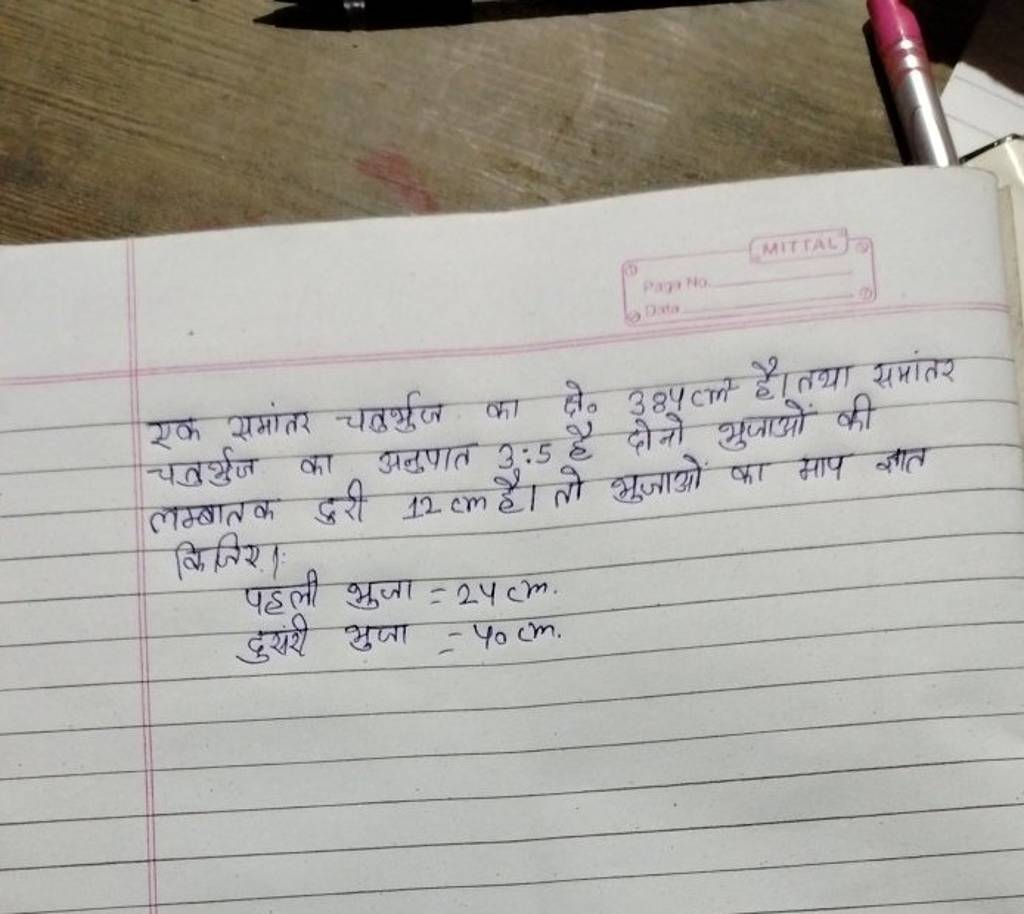 MITTAL
Page No.
Date
एक समांतर चतुर्भुज का क्षे० 384 cm² है। तथा समांतर
चतुर्भुज का अनुपात 3:5 है दोनो भुजाओं की
लम्बातक दुरी 12 cm है। तो भुजाओं का माप ज्ञात
किजिए।
पहली भुजा = 24 cm.
दुसरी भुजा = 40 cm.